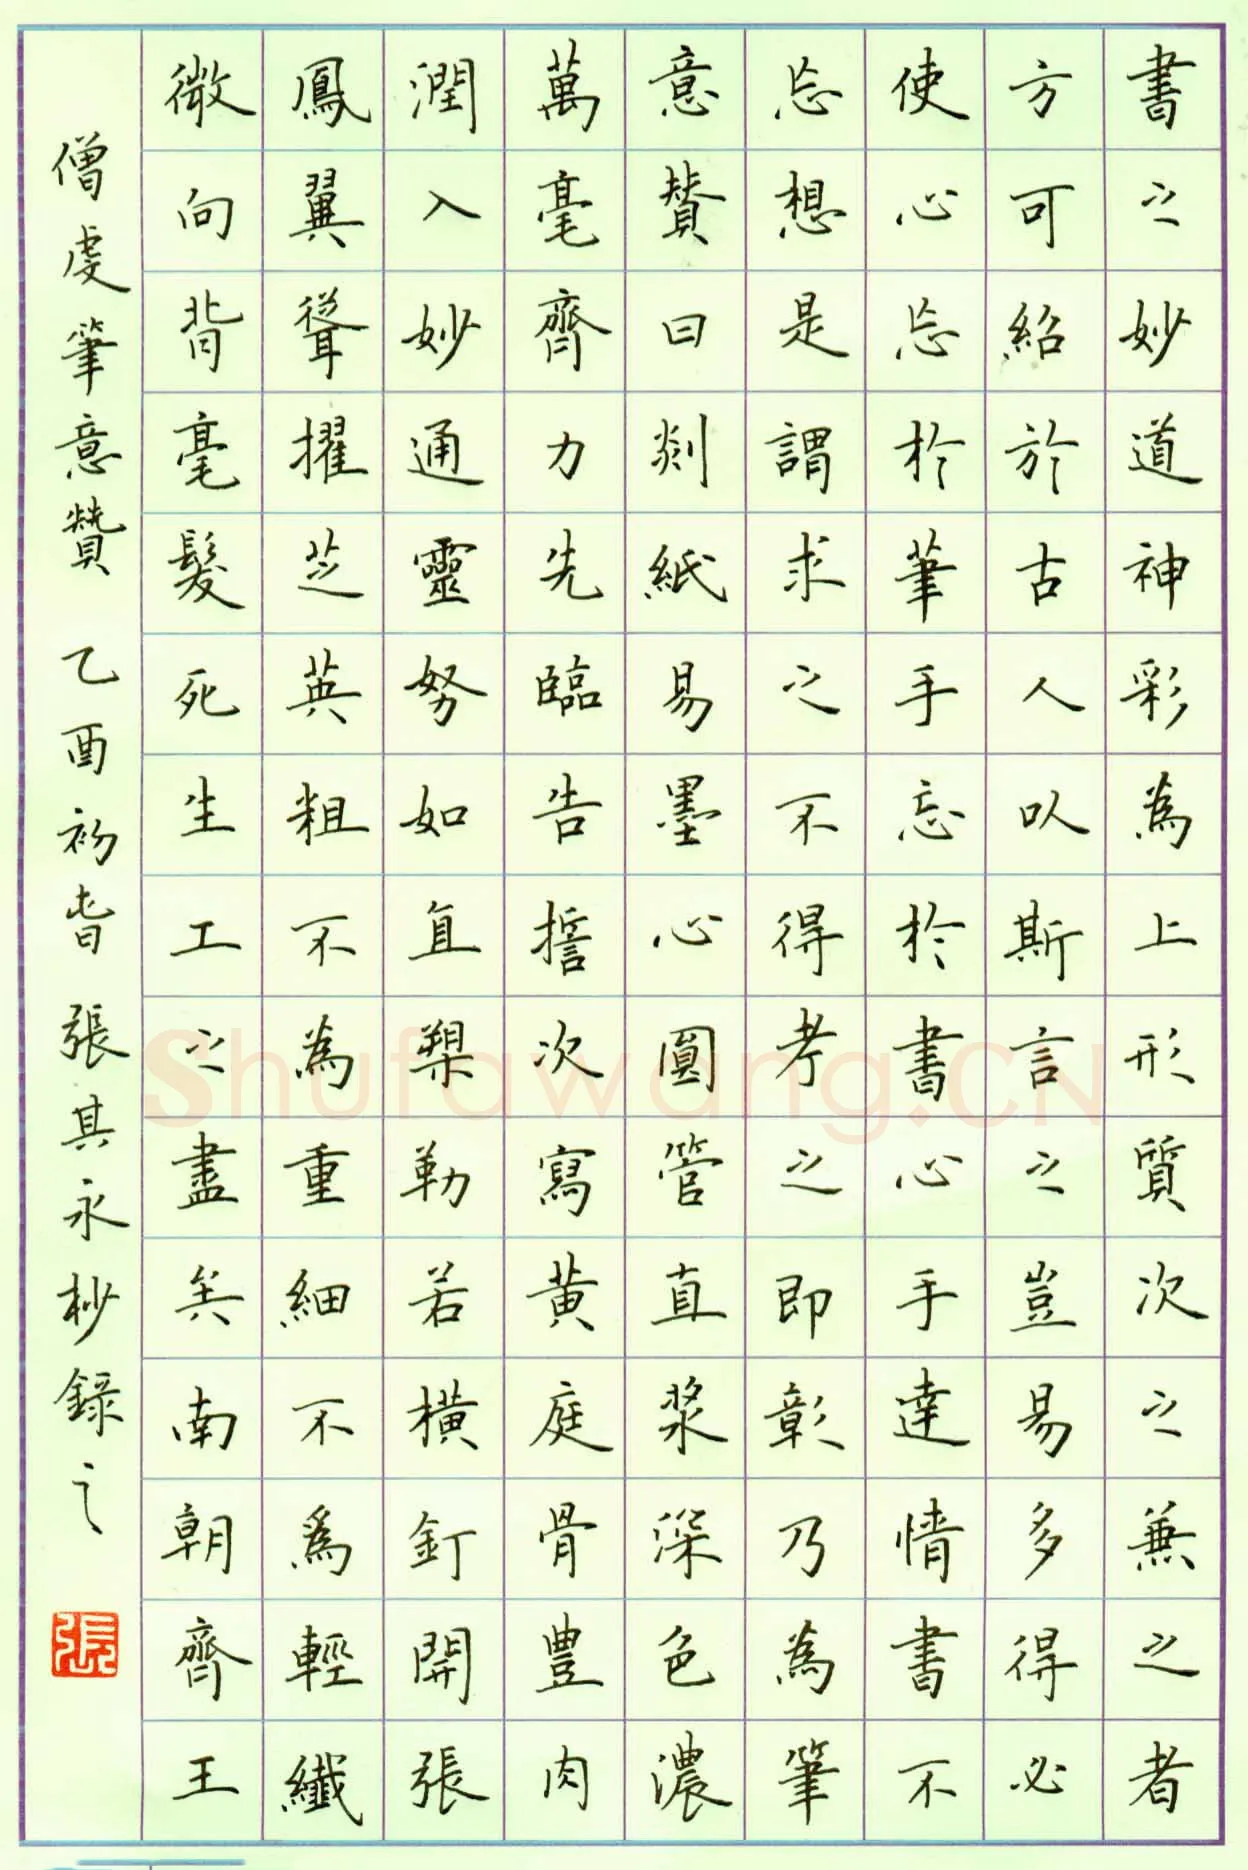 書之妙道神彩為上形質次之兼之者
方可紹於古人以斯言之豈易多得必
使心忘於筆手忘於書心手達情書不
忘想是謂求之不得考之即彰乃為筆
意賛曰剡紙易墨心圓管直漿深色濃
萬毫齊力先臨告誓次寫黃庭骨豐肉
潤入妙通靈努如直槊勒若橫釘開張
鳳翼聳擢芝英粗不為重細不為輕纖
微向背毫髮死生工之盡矣南朝齊王
僧虔筆意贊 乙酉初春 張其永抄錄之
張
Shufawang.CN